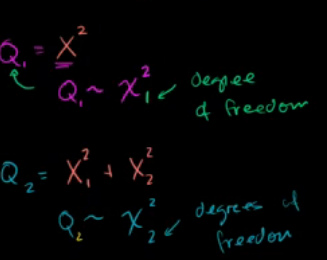 Q₁ = X²
Q₁ ~ χ₁² ← Degree
of freedom
Q₂ = X₁² + X₂²
Q₂ ~ χ₂² ← degrees of
freedom